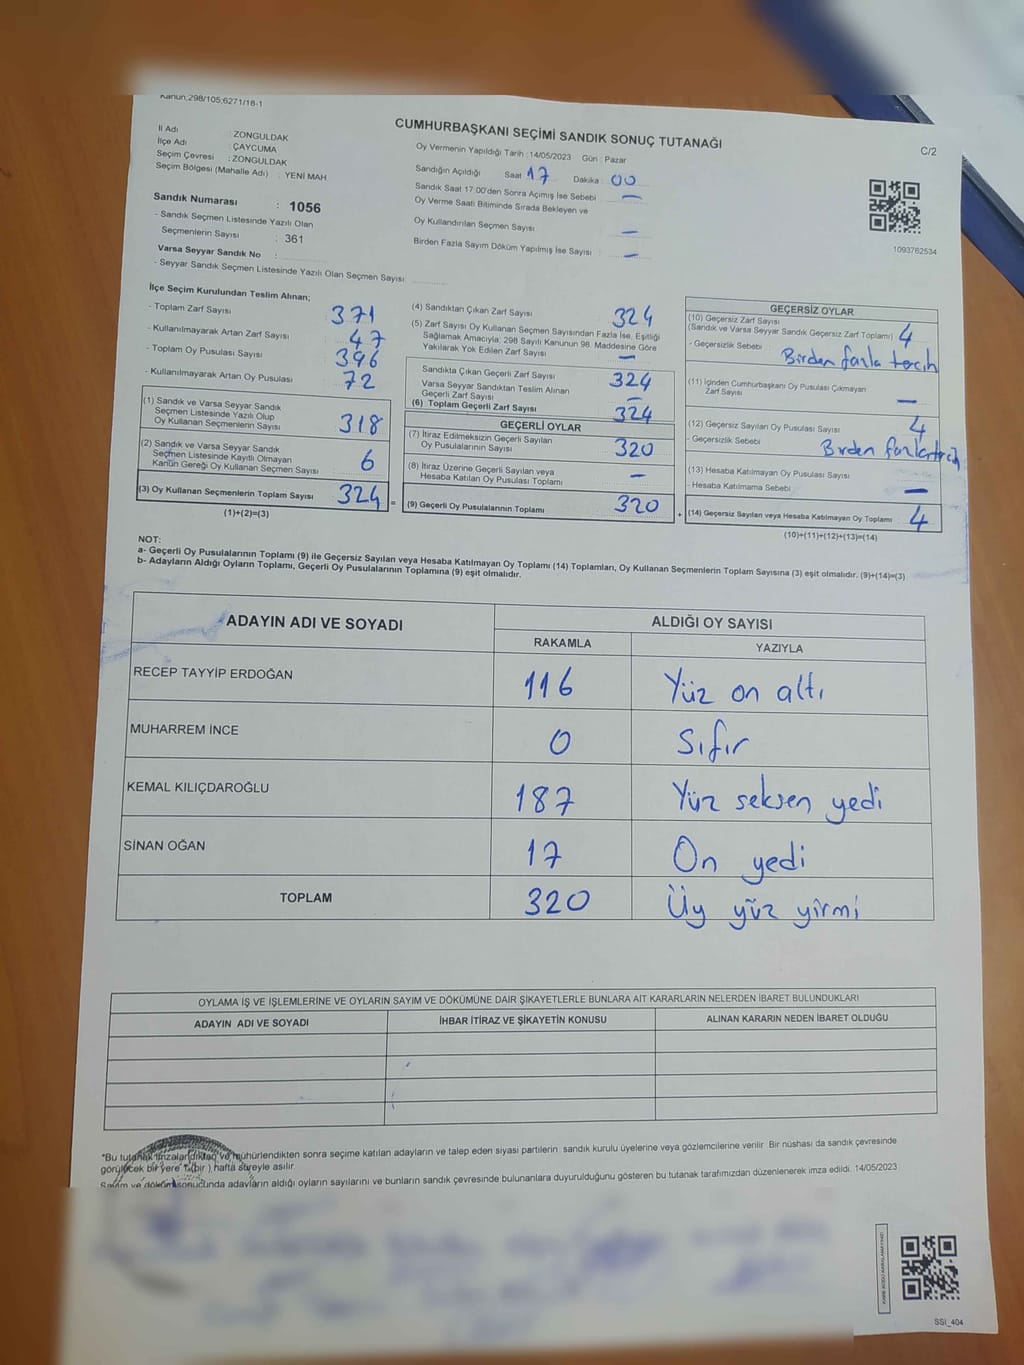 Kanun;298/105;6271/18-1
CUMHURBAŞKANI SEÇİMİ SANDIK SONUÇ TUTANAĞI
C/2
İl Adı : ZONGULDAK
İlçe Adı : ÇAYCUMA
Seçim Çevresi : ZONGULDAK
Seçim Bölgesi (Mahalle Adı) : YENİ MAH
Sandık Numarası : 1056
- Sandık Seçmen Listesinde Yazılı Olan
Seçmenlerin Sayısı : 361
Varsa Seyyar Sandık No :
- Seyyar Sandık Seçmen Listesinde Yazılı Olan Seçmen Sayısı
Oy Vermenin Yapıldığı Tarih : 14/05/2023 Gün : Pazar
Sandığın Açıldığı Saat 17 Dakika : 00
Sandık Saat 17:00'den Sonra Açımış İse Sebebi —
Oy Verme Saati Bitiminde Sırada Bekleyen ve
Oy Kullandırılan Seçmen Sayısı —
Birden Fazla Sayım Döküm Yapılmış İse Sayısı : —
1093762534
İlçe Seçim Kurulundan Teslim Alınan;
- Toplam Zarf Sayısı 371
- Kullanılmayarak Artan Zarf Sayısı 47
- Toplam Oy Pusulası Sayısı 396
- Kullanılmayarak Artan Oy Pusulası 72
(1) Sandık ve Varsa Seyyar Sandık
Seçmen Listesinde Yazılı Olup
Oy Kullanan Seçmenlerin Sayısı 318
(2) Sandık ve Varsa Seyyar Sandık
Seçmen Listesinde Kayıtlı Olmayan
Kanun Gereği Oy Kullanan Seçmen Sayısı 6
(3) Oy Kullanan Seçmenlerin Toplam Sayısı 324 =
(1)+(2)=(3)
(4) Sandıktan Çıkan Zarf Sayısı 324
(5) Zarf Sayısı Oy Kullanan Seçmen Sayısından Fazla İse, Eşitliği
Sağlamak Amacıyla; 298 Sayılı Kanunun 98. Maddesine Göre
Yakılarak Yok Edilen Zarf Sayısı —
Sandıkta Çıkan Geçerli Zarf Sayısı 324
Varsa Seyyar Sandıktan Teslim Alınan
Geçerli Zarf Sayısı —
(6) Toplam Geçerli Zarf Sayısı 324
GEÇERLİ OYLAR
(7) İtiraz Edilmeksizin Geçerli Sayılan
Oy Pusulalarının Sayısı 320
(8) İtiraz Üzerine Geçerli Sayılan veya
Hesaba Katılan Oy Pusulası Toplamı —
(9) Geçerli Oy Pusulalarının Toplamı 320 +
GEÇERSİZ OYLAR
(10) Geçersiz Zarf Sayısı
(Sandık ve Varsa Seyyar Sandık Geçersiz Zarf Toplamı) 4
- Geçersizlik Sebebi Birden fazla tercih
(11) İçinden Cumhurbaşkanı Oy Pusulası Çıkmayan
Zarf Sayısı —
(12) Geçersiz Sayılan Oy Pusulası Sayısı 4
- Geçersizlik Sebebi Birden fazla tercih
(13) Hesaba Katılmayan Oy Pusulası Sayısı
- Hesaba Katılmama Sebebi —
(14) Geçersiz Sayılan veya Hesaba Katılmayan Oy Toplamı 4
(10)+(11)+(12)+(13)=(14)
NOT:
a- Geçerli Oy Pusulalarının Toplamı (9) ile Geçersiz Sayılan veya Hesaba Katılmayan Oy Toplamı (14) Toplamları, Oy Kullanan Seçmenlerin Toplam Sayısına (3) eşit olmalıdır. (9)+(14)=(3)
b- Adayların Aldığı Oyların Toplamı, Geçerli Oy Pusulalarının Toplamına (9) eşit olmalıdır.
ADAYIN ADI VE SOYADI ALDIĞI OY SAYISI
RAKAMLA YAZIYLA
RECEP TAYYİP ERDOĞAN 116 Yüz on altı
MUHARREM İNCE 0 Sıfır
KEMAL KILIÇDAROĞLU 187 Yüz seksen yedi
SİNAN OĞAN 17 On yedi
TOPLAM 320 Üy yüz yirmi
OYLAMA İŞ VE İŞLEMLERİNE VE OYLARIN SAYIM VE DÖKÜMÜNE DAİR ŞİKAYETLERLE BUNLARA AİT KARARLARIN NELERDEN İBARET BULUNDUKLARI
ADAYIN ADI VE SOYADI İHBAR İTİRAZ VE ŞİKAYETİN KONUSU ALINAN KARARIN NEDEN İBARET OLDUĞU
*Bu tutanak imzalandıktan ve mühürlendikten sonra seçime katılan adayların ve talep eden siyasi partilerin sandık kurulu üyelerine veya gözlemcilerine verilir. Bir nüshası da sandık çevresinde
görülecek bir yere 1 (bir) hafta süreyle asılır.
Sayım ve döküm sonucunda adayların aldığı oyların sayılarını ve bunların sandık çevresinde bulunanlara duyurulduğunu gösteren bu tutanak tarafımızdan düzenlenerek imza edildi. 14/05/2023
SSI_404